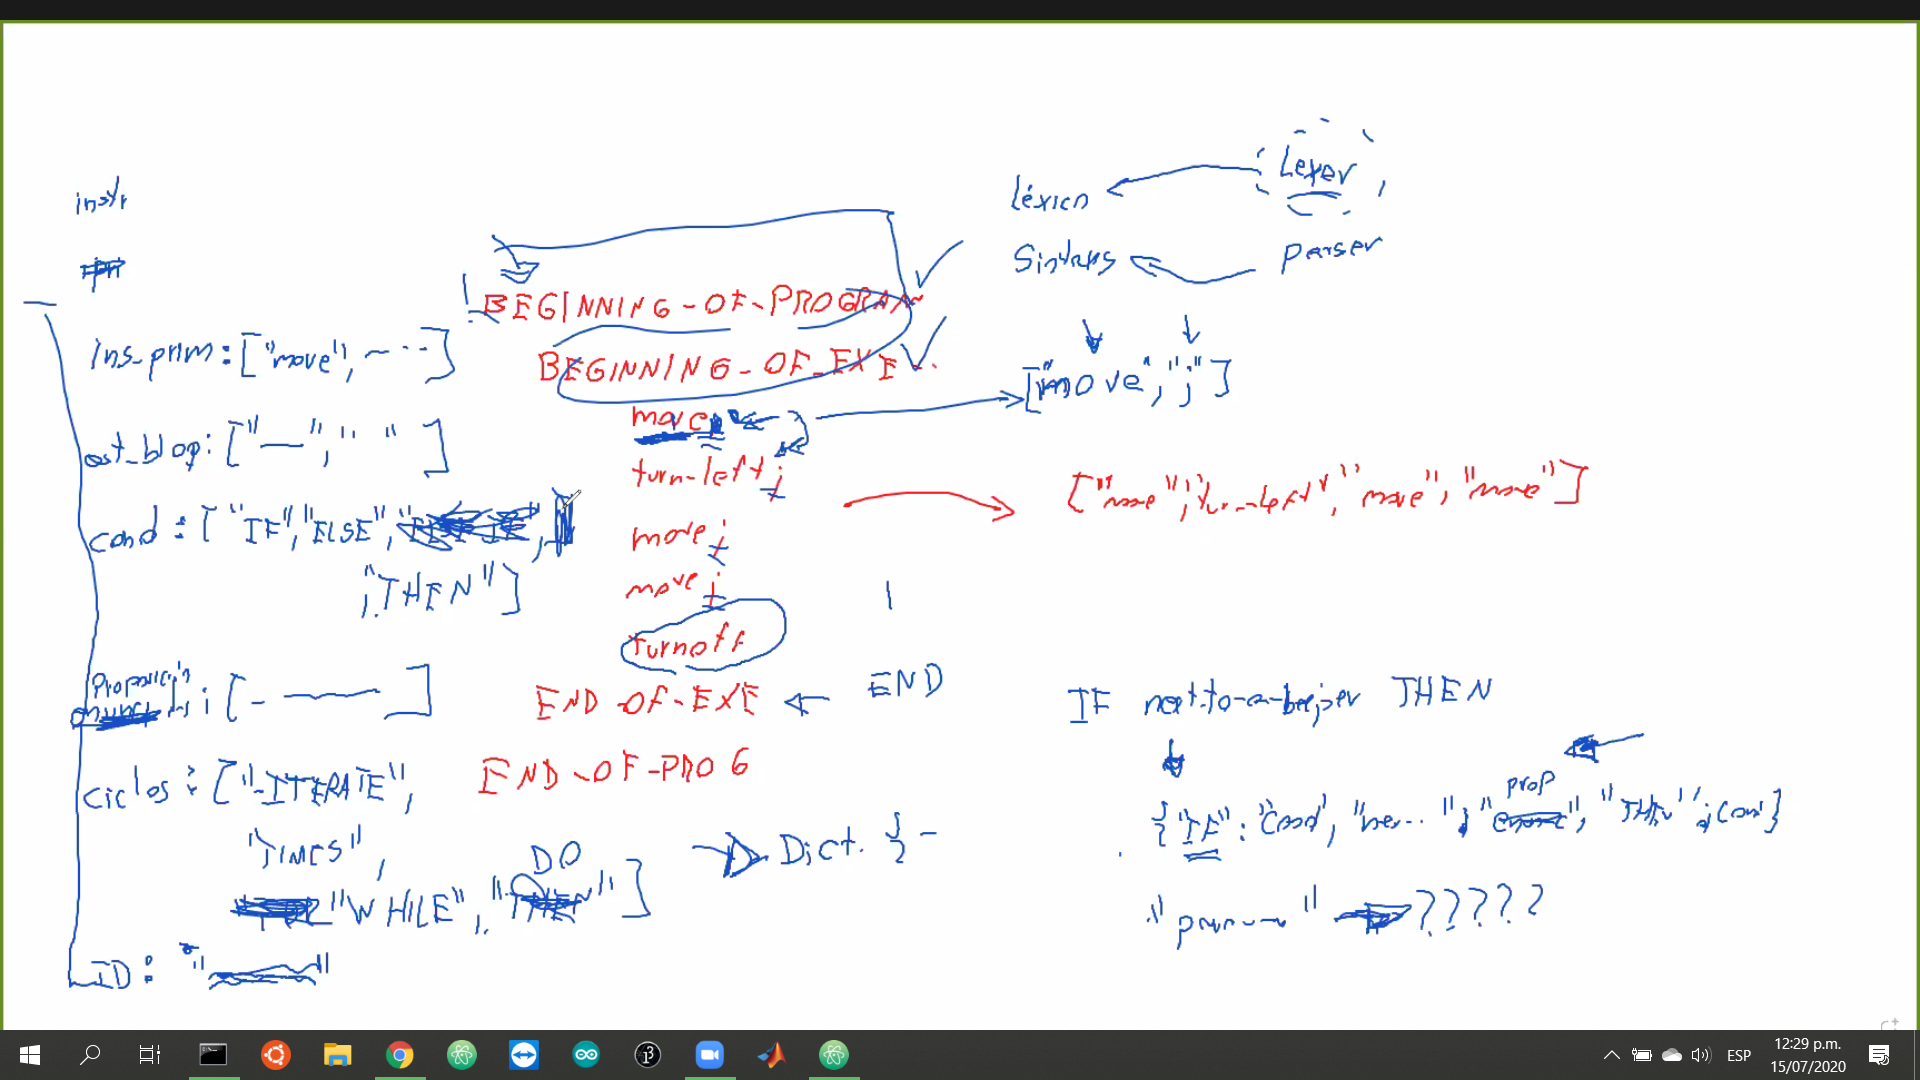 instr
ins_prim: ["move", ~---]
est_bloq: ["—", " "]
cond: ["IF", "ELSE",
, "THEN"]
: [- ———]
ciclos: ["ITERATE",
"TIMES",
DO
"WHILE", "
ID: "
BEGINNING-OF-PROGRAM
BEGINNING-OF-EXE
move
turn-left;
move;
move;
turnoff
END-OF-EXE
END
END-OF-PROG
Dict. { -
Léxico
Lexer
Sintaxis
Parser
["move", ";"]
["move", "turn-left", "move", "move"]
IF next-to-a-beeper THEN
prop
{"IF": "cond", "bee..", "THEN"
?????
12:29 p.m.
ESP
15/07/2020